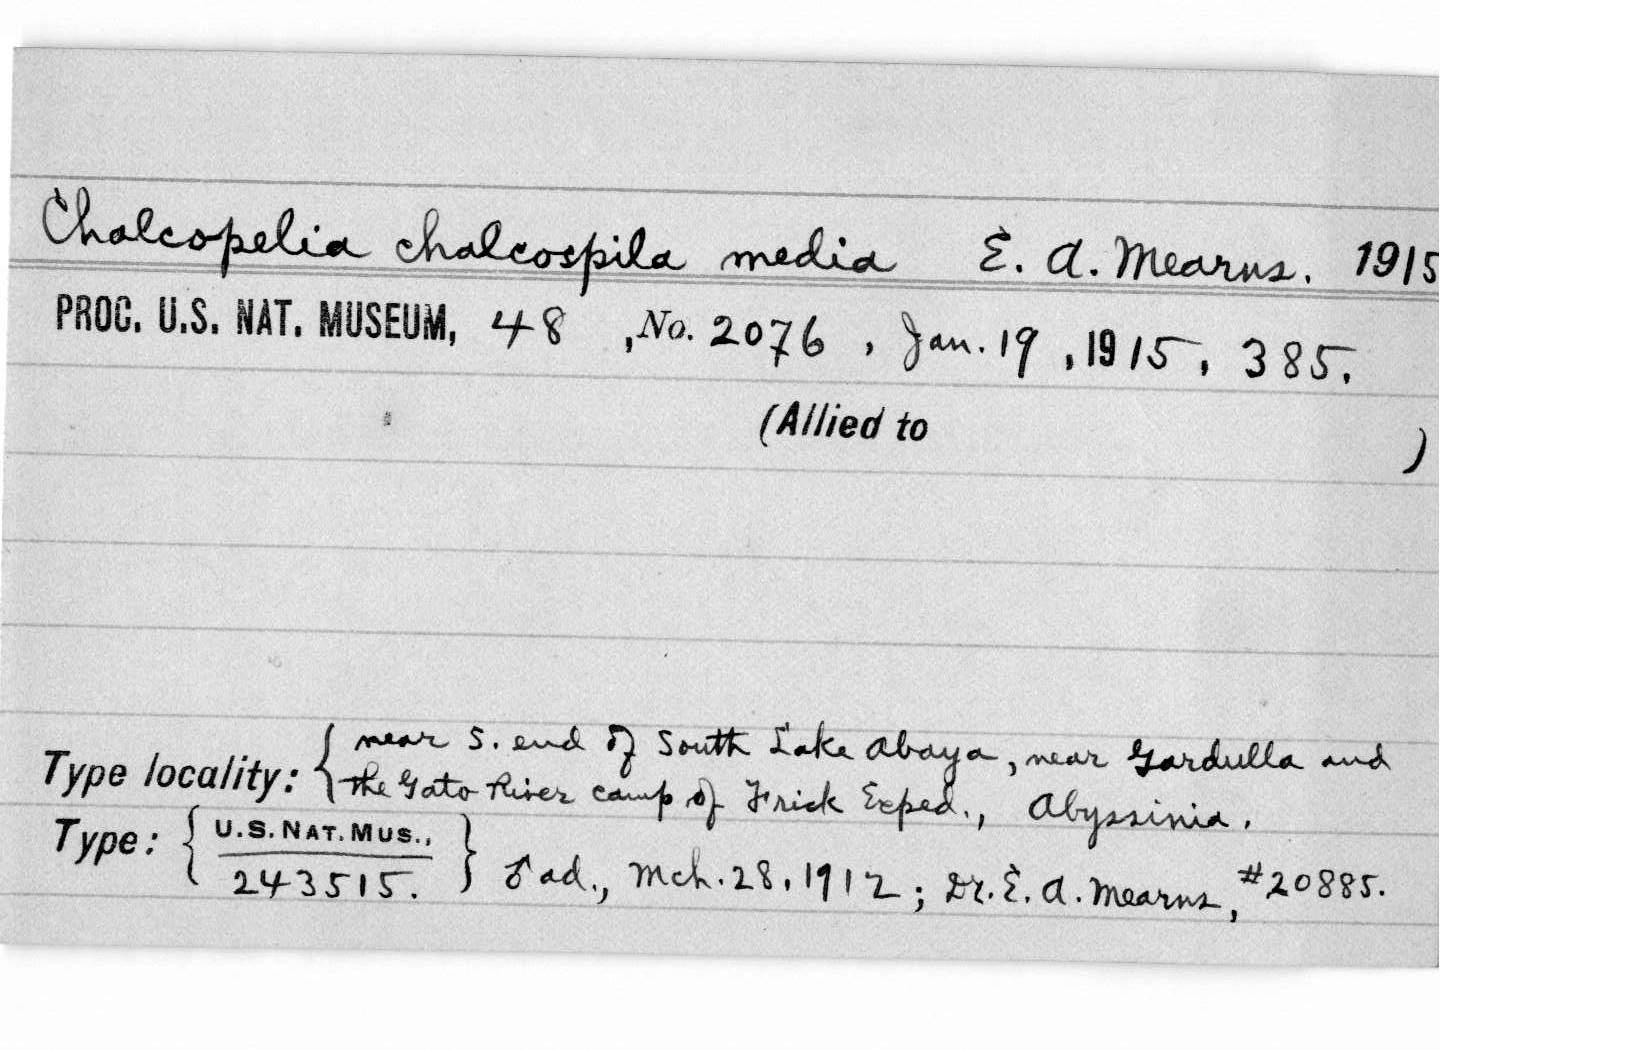 Chalcopelia chalcospila media E. A. Mearns. 1915
PROC. U.S. NAT. MUSEUM, 48 , No. 2076 , Jan. 19 , 1915 , 385.
(Allied to )
Type locality: { near S. end of South Lake Abaya, near Gardulla and
the Gato River camp of Frick Exped., Abyssinia.
Type: { U.S. NAT. MUS., 243515. } ♂ ad., Mch. 28, 1912; Dr. E. A. Mearns, #20885.